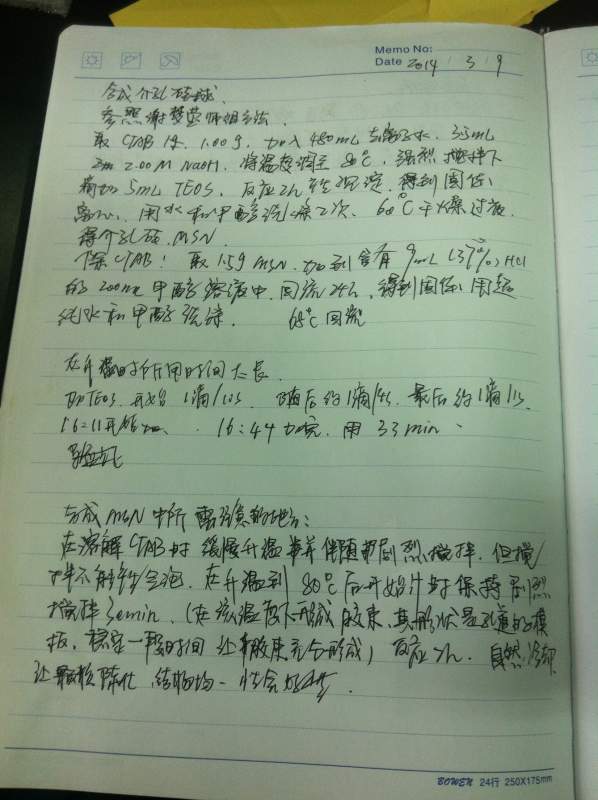 Memo No:
Date 2014 / 3 / 9
合成介孔硅球.
参照谢梦莹师姐方法.
取 CTAB 1.00g, 加入480mL去离子水, 3.5mL
2.00M NaOH, 将温度调至 80℃, 强烈搅拌下
滴加 5mL TEOS, 反应2h 沉淀, 得到固体,
离心, 用水和甲醇洗涤二次、60℃干燥过夜,
得介孔硅 MSN
除CTAB: 取1.5g MSN, 加到含有 9mL (37%) HCl
的 200mL 甲醇溶液中, 回流24h, 得到固体, 用超
纯水和甲醇洗涤. 60℃回流
在升温时所用时间太长.
加TEOS, 开始 1滴/10s. 随后约1滴/4s. 最后约1滴/1s.
16:11开始 16:44 加完, 用 33min.
合成MSN中所需注意的地方:
在溶解CTAB时 缓慢升温 并伴随剧烈搅拌, 但搅
拌不能产生气泡. 在升温到 80℃后开始计时保持剧烈
搅拌30min. (在该温度下形成胶束, 其形状是孔道的模
板, 稳定一段时间让胶束充分形成) 反应2h. 自然冷却
让颗粒陈化, 结构均一性会好些.
BOWEN 24行 250X175mm